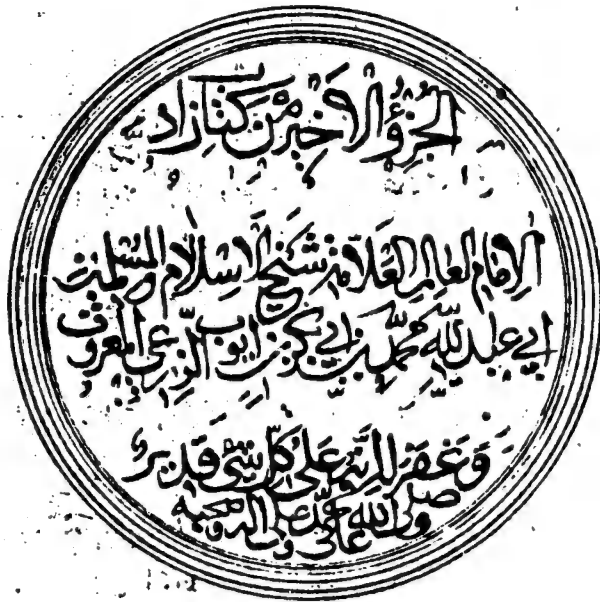 الجزؤ الاخير من كتاب زاد
الامام العالم العلامة شيخ الاسلام والمسلمين
ابي عبد الله محمد بن ابي بكر بن ايوب الزرعي المعروف
وغفر له انه على كل شي قدير
وصلى الله على محمد وعلى اله وصحبه